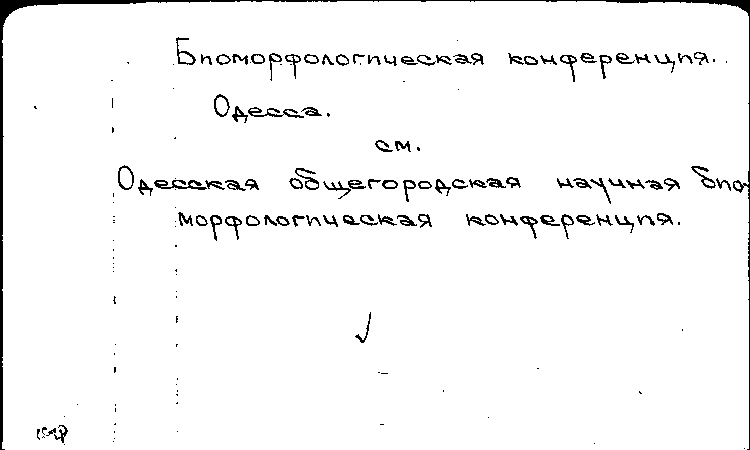 Биоморфологическая конференция.
Одесса.
см.
Одесская общегородская научная био-
морфологическая конференция.